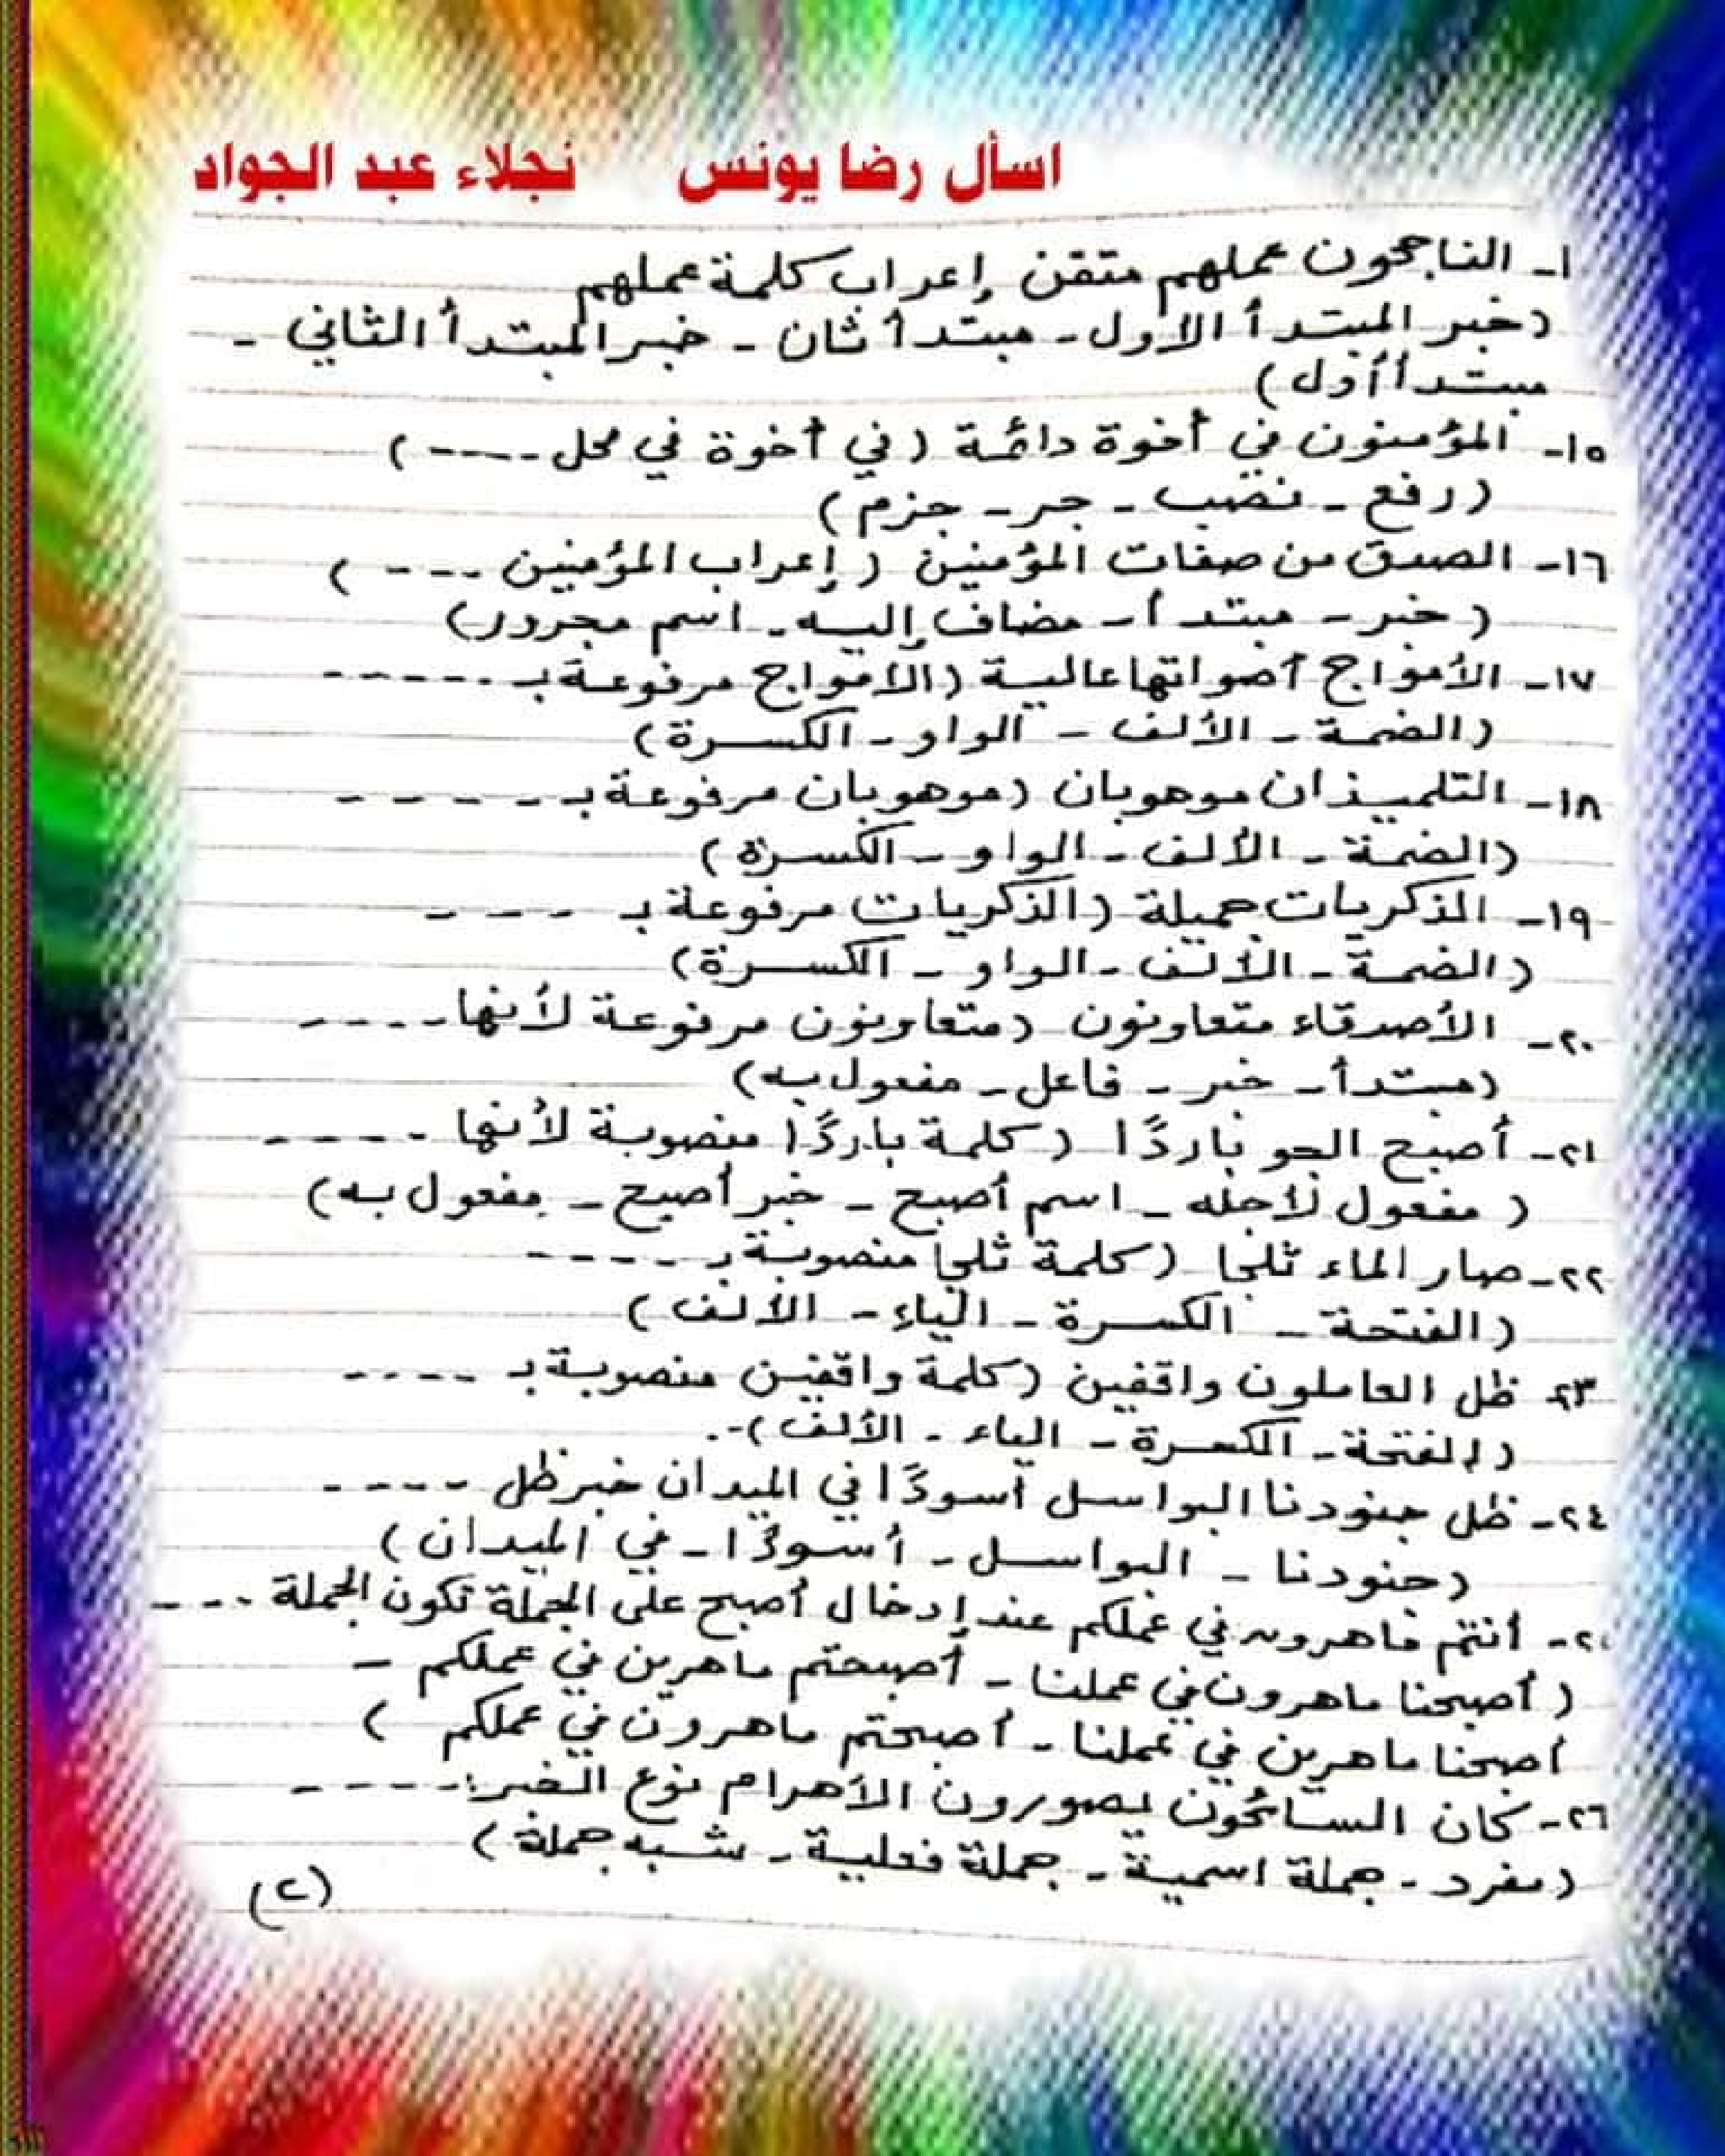 اسأل رضا يونس نجلاء عبد الجواد
١- الناجحون عملهم متقن إعراب كلمة عملهم
(خبر المبتدأ الأول - مبتدأ ثان - خبر المبتدأ الثاني -
مبتدأ أول)
١٥- المؤمنون في أخوة دائمة (في أخوة في محل ----)
(رفع - نصب - جر - جزم)
١٦- الصدق من صفات المؤمنين (إعراب المؤمنين ---)
(خبر - مبتدأ - مضاف إليه - اسم مجرور)
١٧- الأمواج أصواتها عالية (الأمواج مرفوعة بـ -----
(الضمة - الألف - الواو - الكسرة)
١٨- التلميذان موهوبان (موهوبان مرفوعة بـ ----
(الضمة - الألف - الواو - الكسرة)
١٩- الذكريات جميلة (الذكريات مرفوعة بـ ---
(الضمة - الألف - الواو - الكسرة)
٢٠- الأصدقاء متعاونون (متعاونون مرفوعة لأنها ----
(مبتدأ - خبر - فاعل - مفعول به)
٢١- أصبح الجو باردًا (كلمة باردًا منصوبة لأنها ----
(مفعول لأجله - اسم أصبح - خبر أصبح - مفعول به)
٢٢- صار الماء ثلجا (كلمة ثلجا منصوبة بـ ----
(الفتحة - الكسرة - الياء - الألف)
٢٣ ظل العاملون واقفين (كلمة واقفين منصوبة بـ ----
(الفتحة - الكسرة - الياء - الألف)-.
٢٤- ظل جنودنا البواسل أسودًا في الميدان خبر ظل ----
(جنودنا - البواسل - أسودًا - في الميدان)
٢- أنتم ماهرون في عملكم عند إدخال أصبح على الجملة تكون الجملة ---
(أصبحنا ماهرون في عملنا - أصبحتم ماهرين في عملكم -
أصبحنا ماهرين في عملنا - أصبحتم ماهرون في عملكم)
٢٦- كان السائحون يصورون الأهرام نوع الخبر: ----
(مفرد - جملة اسمية - جملة فعلية - شبه جملة)
(٢)